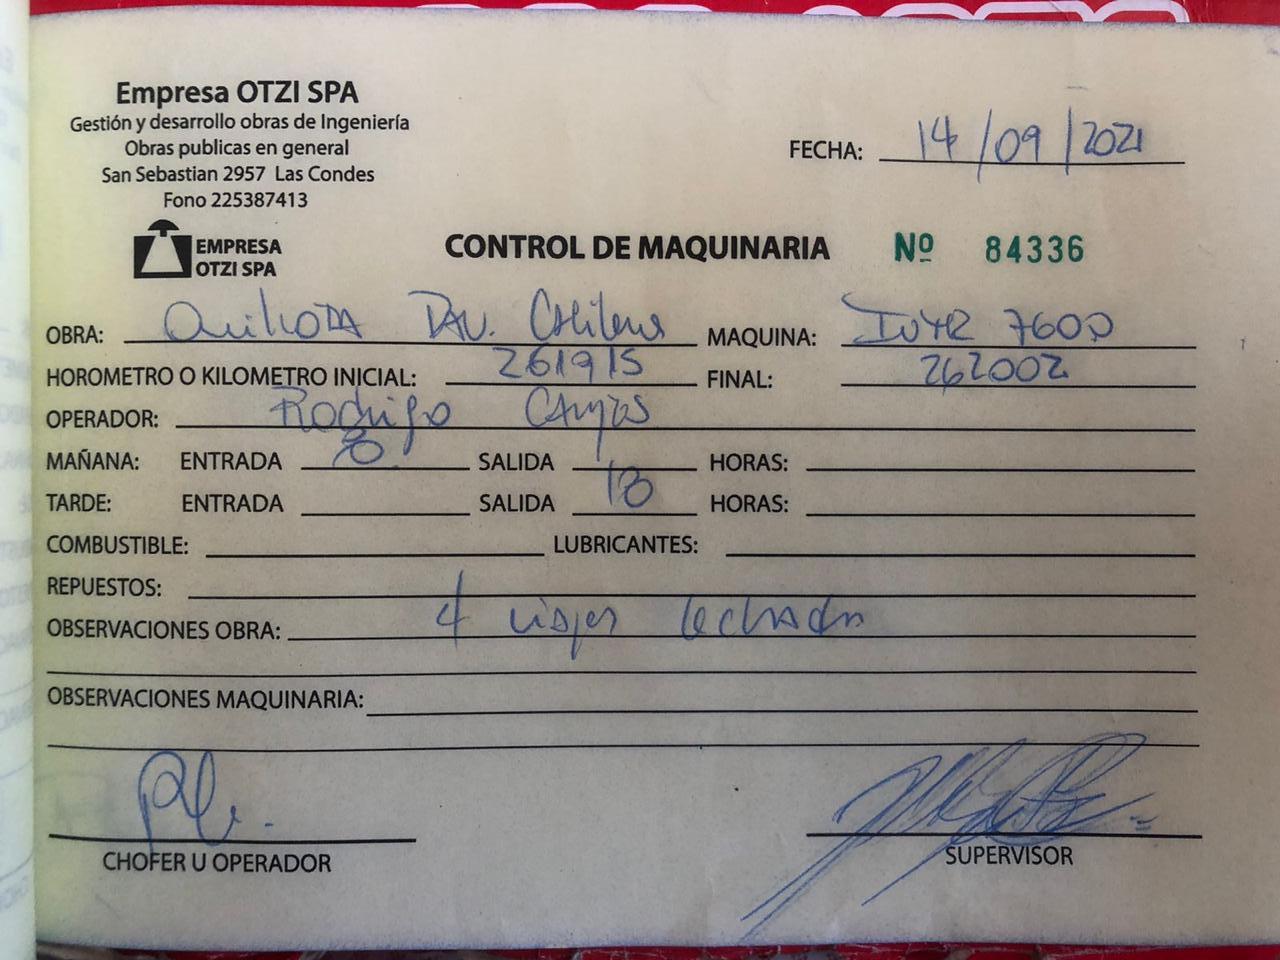 Empresa OTZI SPA
Gestión y desarrollo obras de Ingeniería
Obras publicas en general
San Sebastian 2957 Las Condes
Fono 225387413
FECHA: 14/09/2021
EMPRESA
OTZI SPA
CONTROL DE MAQUINARIA Nº 84336
OBRA: Quillota MAQUINA: 7600
HOROMETRO O KILOMETRO INICIAL: 261915 FINAL: 262002
OPERADOR: Rodrigo Campos
MAÑANA: ENTRADA 8 SALIDA HORAS:
TARDE: ENTRADA SALIDA 18 HORAS:
COMBUSTIBLE: LUBRICANTES:
REPUESTOS:
OBSERVACIONES OBRA: 4 viajes lechada
OBSERVACIONES MAQUINARIA:
CHOFER U OPERADOR
SUPERVISOR